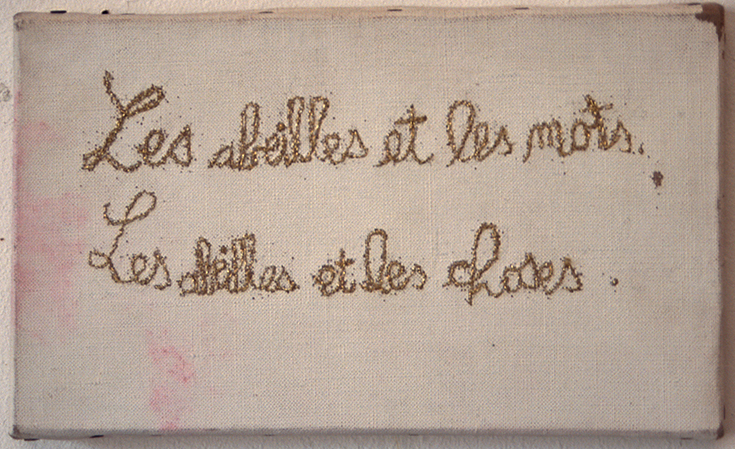 Les abeilles et les mots.
Les abeilles et les choses.